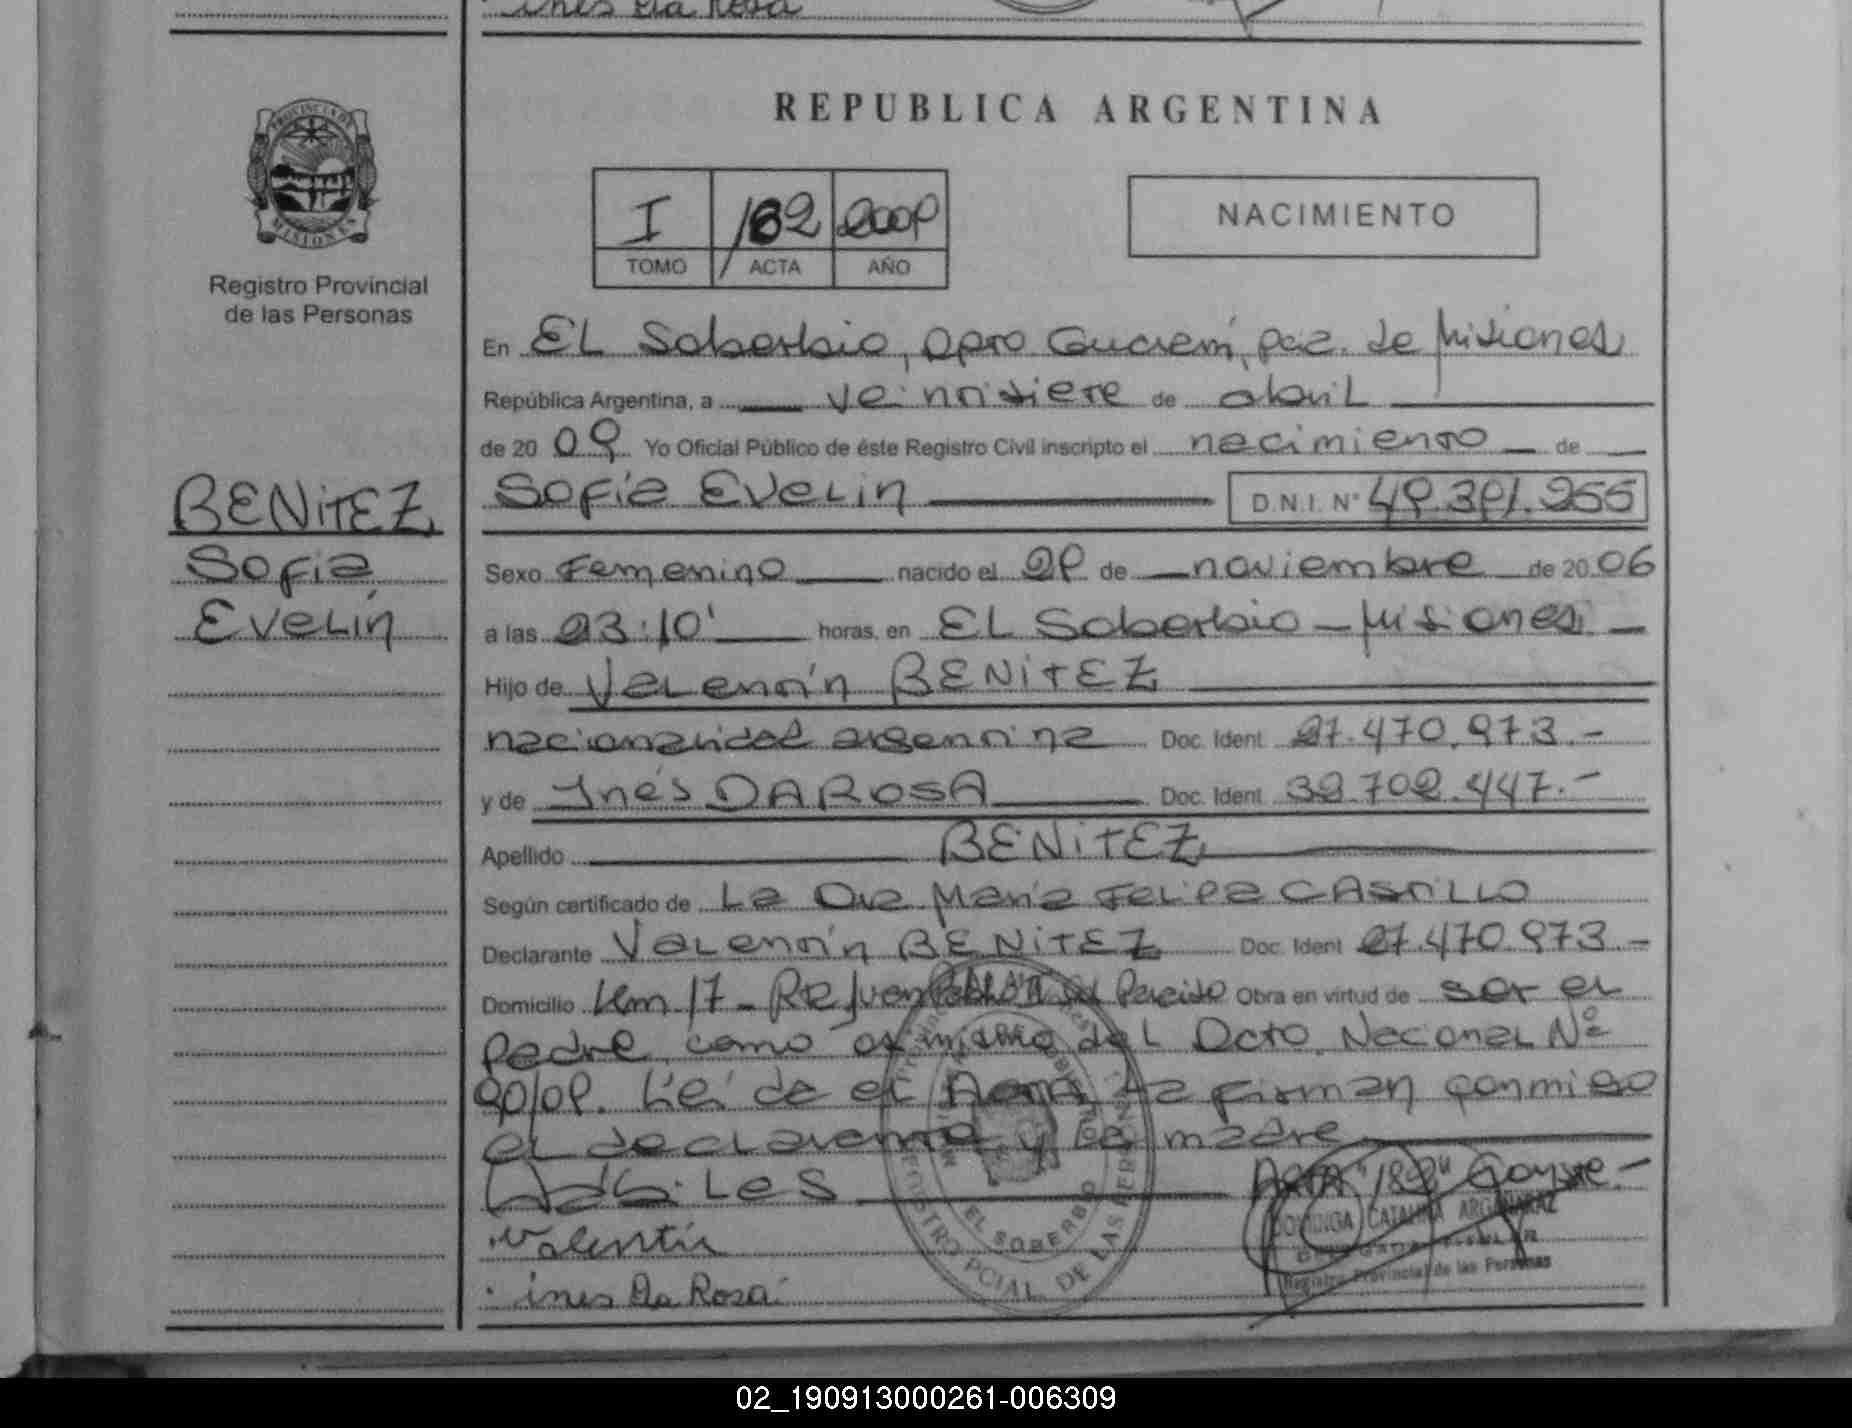 ines Da Rosa
PROVINCIA DE
MISIONES
Registro Provincial
de las Personas
REPUBLICA ARGENTINA
I 182 2009
TOMO ACTA AÑO
NACIMIENTO
En EL Soberbio, Dpto Guaraní, Pcia. de Misiones
República Argentina, a veintisiete de abril
de 20 09 Yo Oficial Público de éste Registro Civil inscripto el nacimiento de
BENiTEZ
Sofía
EveLin
Sofía EveLin D.N.I. N° 49.391.255
Sexo Femenino nacido el 29 de noviembre de 20 06
a las 23:10' horas, en EL Soberbio - Misiones
Hijo de Valentín BENiTEZ
nacionalidad argentina Doc. Ident. 27.470.973.-
y de Inés DA ROSA Doc. Ident. 32.702.447.-
Apellido BENiTEZ
Según certificado de La Dra María Felipa CASTILLO
Declarante Valentín BENiTEZ Doc. Ident 27.470.973 -
Domicilio Km 17 - RP Juan Paraiso Obra en virtud de ser el
padre, como del Dcto. Nacional Nº
90/09. Leída el Acta La firman conmigo
el declarante y la madre
hábiles Acta "182" Conste.-
DOMINGA CATALINA ARGAÑARAZ
DELEGADA TITULAR
Registro Provincial de las Personas
Valentín
ines Da Rosa
REGISTRO PCIAL. DE LAS PERSONAS
EL SOBERBIO
02_190913000261-006309